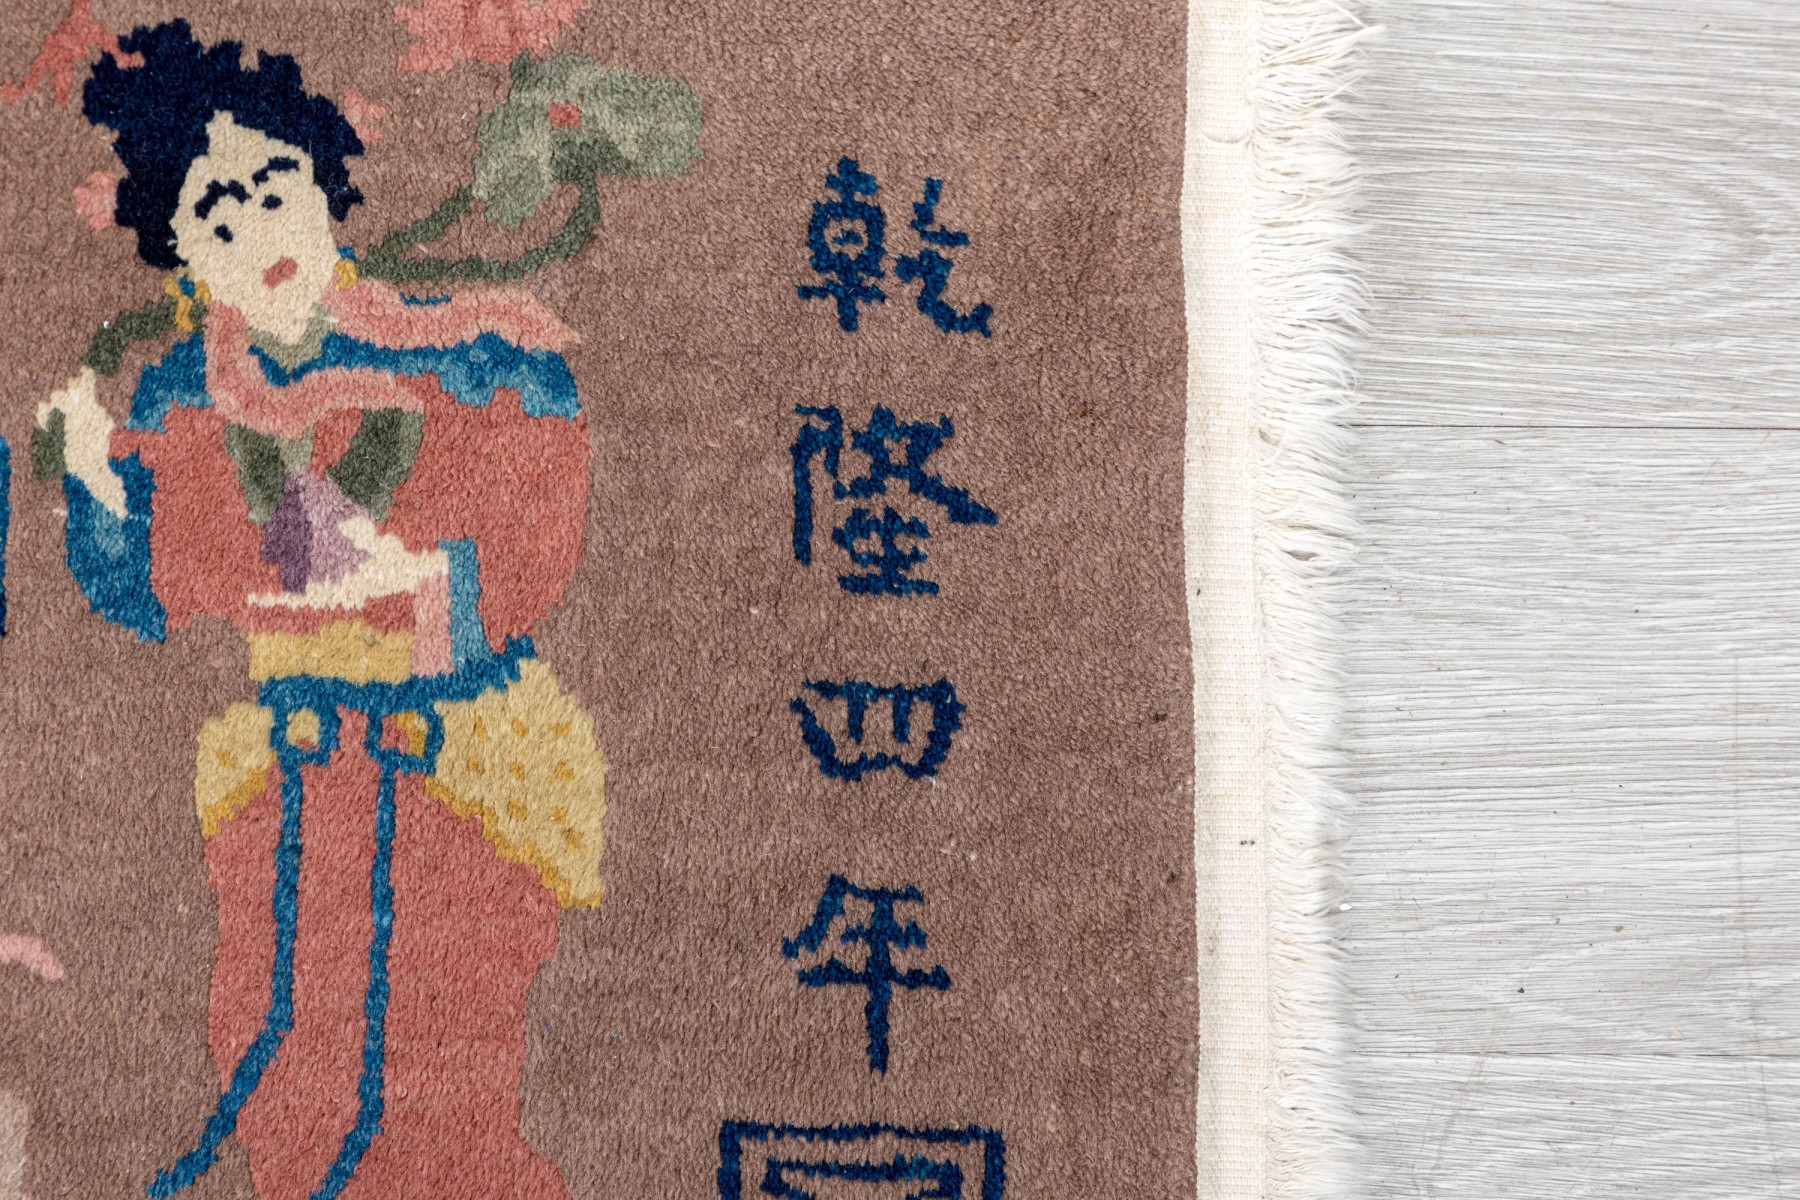 乾隆四年